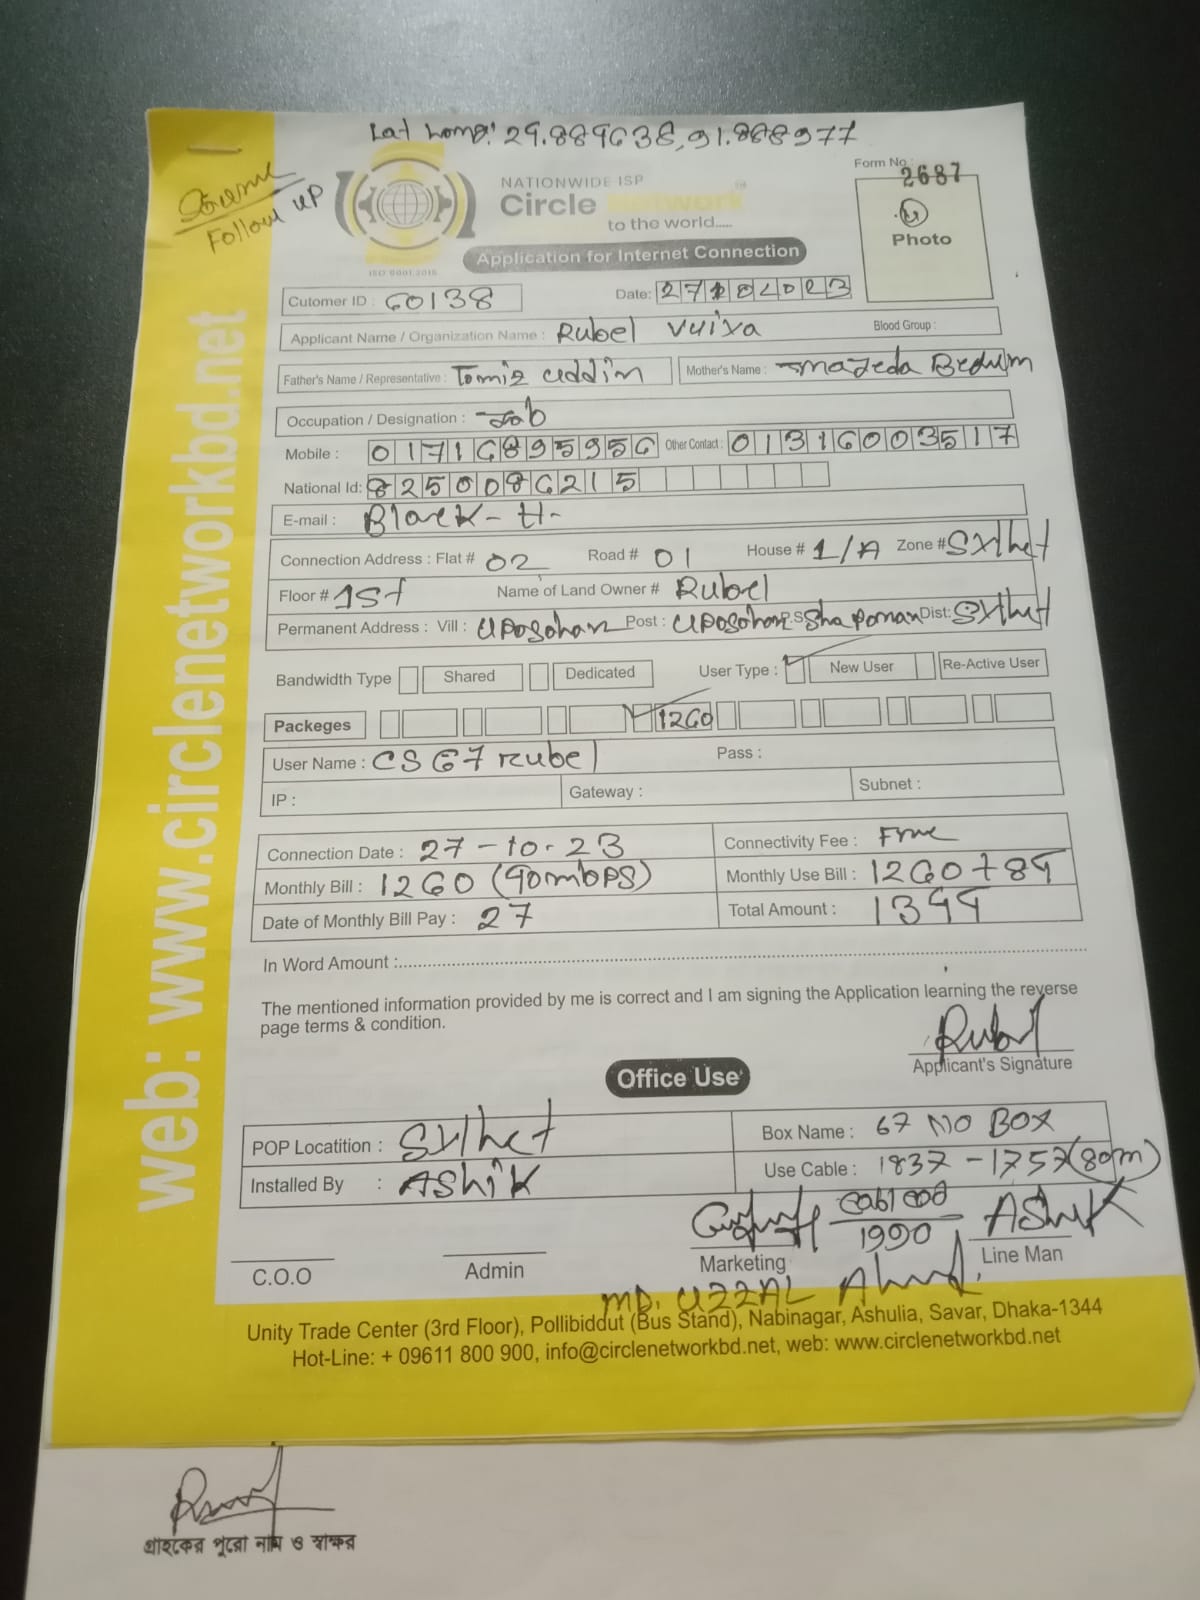 Lat Long: 24.889638, 91.888977
Follow UP
Form No :
2687
NATIONWIDE ISP
Circle network
to the world.....
Photo
ISO 9001:2015
Application for Internet Connection
Cutomer ID : 60138 Date: 27102023
Applicant Name / Organization Name : Rubel Vuiya Blood Group :
Father's Name / Representative : Tomiz uddin Mother's Name : Mazeda Begum
Occupation / Designation : Job
Mobile : 01716895956 Other Contact : 01316003517
National Id: 8250086215
E-mail : Block - H -
Connection Address : Flat # 02 Road # 01 House # 1/A Zone # Sylhet
Floor # 1st Name of Land Owner # Rubel
Permanent Address : Vill : Uposohor Post : Uposohor P.S Shaporan Dist: Sylhet
Bandwidth Type Shared Dedicated User Type : New User Re-Active User
Packeges 1260
User Name : CS67rubel Pass :
IP : Gateway : Subnet :
Connection Date : 27-10-23 Connectivity Fee : Free
Monthly Bill : 1260 (40mbps) Monthly Use Bill : 1260+84
Date of Monthly Bill Pay : 27 Total Amount : 1344
In Word Amount :
The mentioned information provided by me is correct and I am signing the Application learning the reverse
page terms & condition.
Rubel
Applicant's Signature
Office Use
POP Locatition : Sylhet Box Name : 67 NO BOX
Installed By : Ashik Use Cable : 1837-1757(80m)
1990 Ashik
C.O.O Admin Marketing Line Man
MD. UZZAL Ahmed.
Unity Trade Center (3rd Floor), Pollibiddut (Bus Stand), Nabinagar, Ashulia, Savar, Dhaka-1344
Hot-Line: + 09611 800 900, info@circlenetworkbd.net, web: www.circlenetworkbd.net
web: www.circlenetworkbd.net
গ্রাহকের পুরো নাম ও স্বাক্ষর